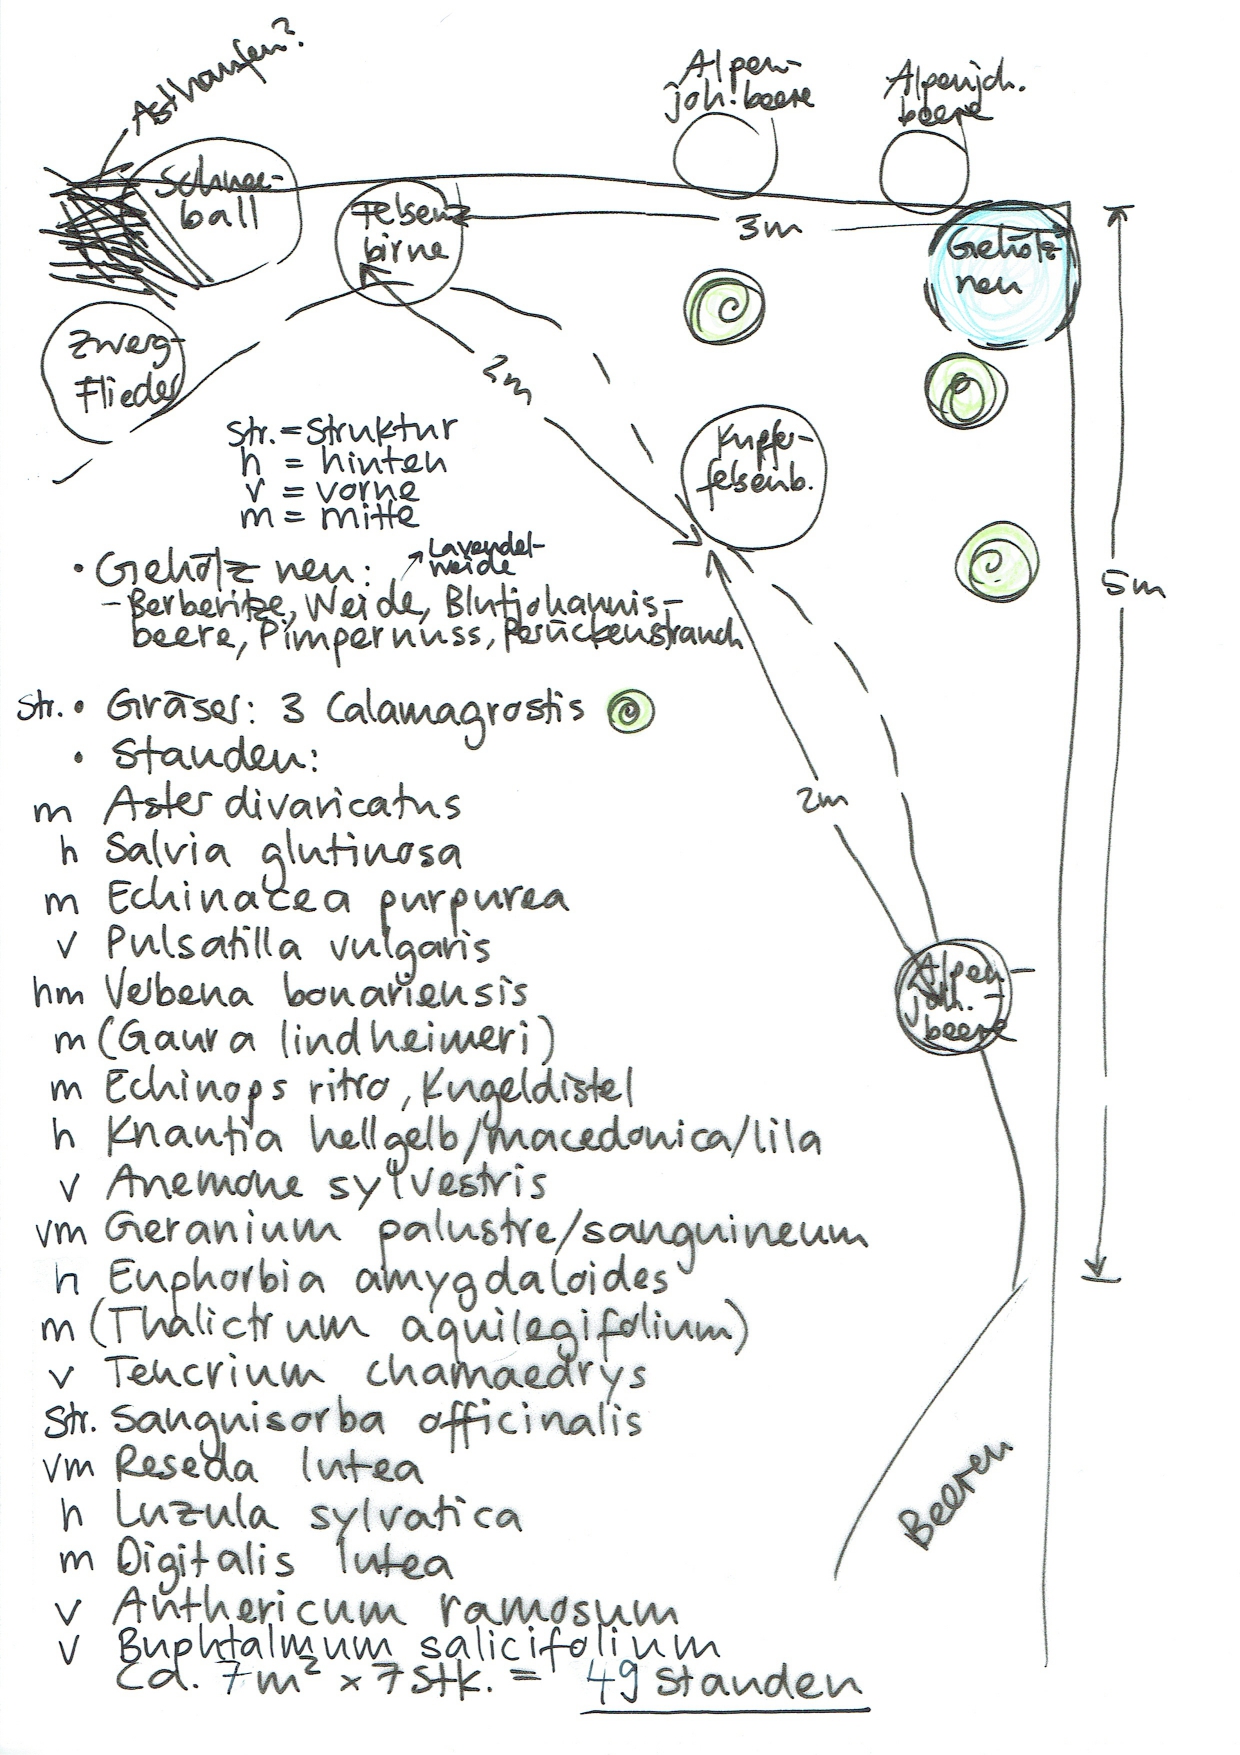 Asthaufen?
Alpen-
joh.beere
Alpenjoh.
beere
Schnee-
ball
Felsen-
birne
3m
Gehölz
neu
Zwerg-
Flieder
2m
Kupfer-
felsenb.
5m
str. = Struktur
h = hinten
v = vorne
m = mitte
• Gehölz neu:
Lavendel-
weide
- Berberitze, Weide, Blutjohannis-
beere, Pimpernuss, Perückenstrauch
Str. • Gräser: 3 Calamagrostis
• Stauden:
2m
m Aster divaricatus
h Salvia glutinosa
m Echinacea purpurea
v Pulsatilla vulgaris
hm Verbena bonariensis
m (Gaura lindheimeri)
m Echinops ritro, Kugeldistel
h Knautia hellgelb/macedonica/lila
v Anemone sylvestris
vm Geranium palustre/sanguineum
h Euphorbia amygdaloides
m (Thalictrum aquilegifolium)
v Teucrium chamaedrys
Str. Sanguisorba officinalis
vm Reseda lutea
h Luzula sylvatica
m Digitalis lutea
v Anthericum ramosum
v Buphtalmum salicifolium
ca. 7m² x 7 Stk. = 49 Stauden
Alpen-
joh.-
beere
Beeren